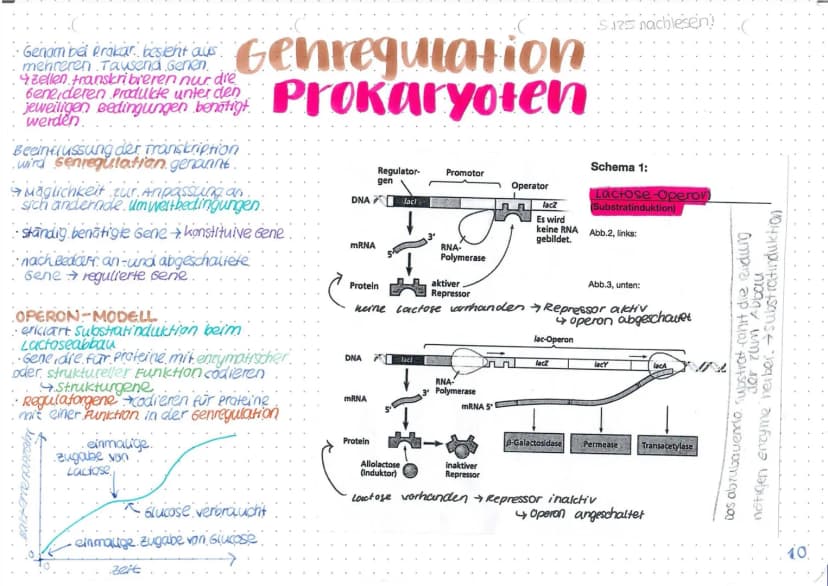 S.125 nachlesen!
Genregulation
Prokaryoten
· Genom bei Prokar. besteht aus
mehreren Tausend Genen.
↳ Zellen transkribieren nur die
Gene, deren Produkte unter den
jeweiligen Bedingungen benötigt
werden.
Beeinflussung der Transkription
wird Genregulation genannt.
↳ Möglichkeit zur Anpassung an
sich ändernde Umweltbedingungen
· ständig benötigte Gene → konstituive Gene
· nach Bedarf an- und abgeschaltete
Gene → regulierte Gene
OPERON-MODELL
· erklärt Substratinduktion beim
Lactoseabbau
· Gene, die für Proteine mit enzymatischer
oder struktureller Funktion codieren
↳ Strukturgene
· Regulatorgene → codieren für Proteine
mit einer Funktion in der Genregulation
einmalige
Zugabe von
Lactose
Glucose verbraucht
einmalige Zugabe von Glucose
0
0
Zeit
Schema 1:
Lactose-Operon
(Substratinduktion)
Abb.2, links:
Abb.3, unten:
Regulator-
gen
Promotor
Operator
DNA
lacI
lacZ
Es wird
keine RNA
gebildet.
mRNA
3'
5'
RNA-
Polymerase
Protein
aktiver
Repressor
keine Lactose vorhanden → Repressor aktiv
↳ Operon abgeschaltet
lac-Operon
DNA
lacI
lacZ
lacY
lacA
RNA-
Polymerase
mRNA
3'
5'
mRNA 5'
Protein
β-Galactosidase
Permease
Transacetylase
Allolactose
(Induktor)
inaktiver
Repressor
Lactose vorhanden → Repressor inaktiv
↳ Operon angeschaltet
Das abzubauende Substrat führt die Bildung
der zum Abbau
nötigen Enzyme herbei. → Substratinduktion
10